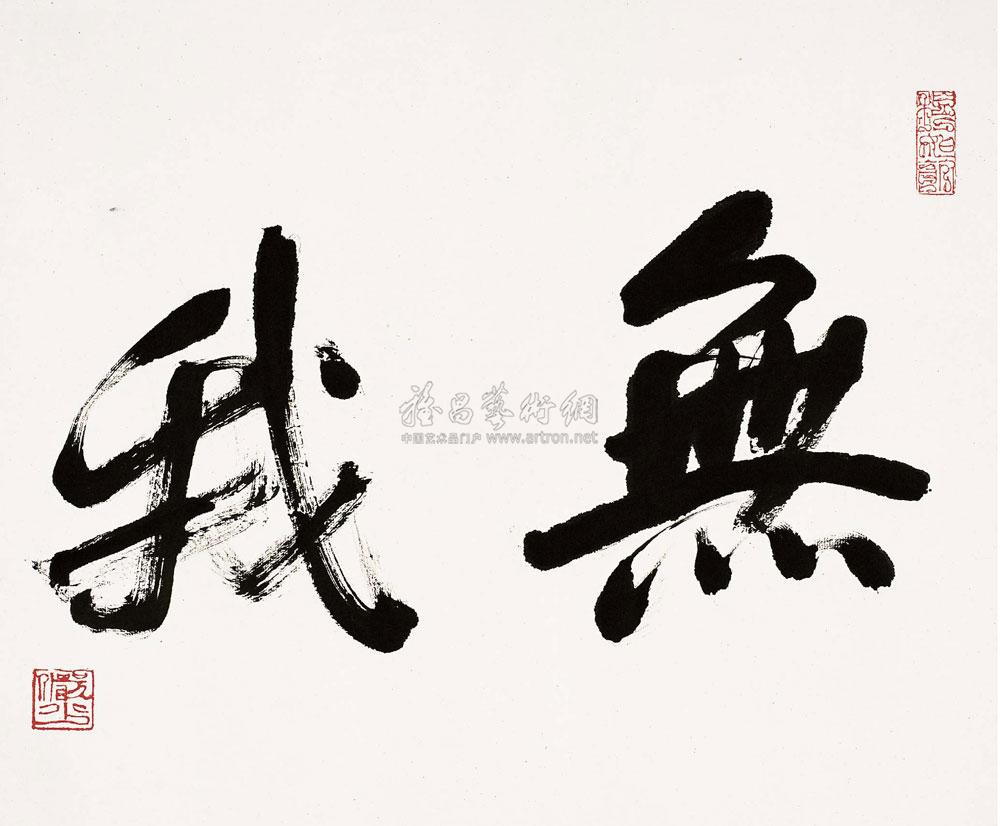 無我
雅昌藝術網
中国艺术品门户 www.artron.net